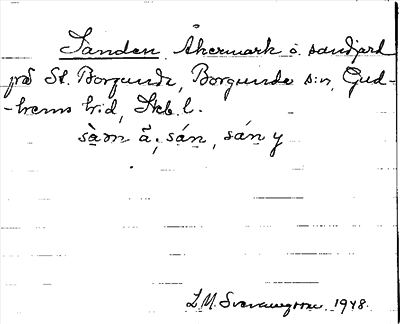 Sanden Åkermark o. sandjord
på St. Borgunda, Borgunda s:n, Gud-
-hems h:d, Skb. l.
sàm å; sán, sán y
L. M. Svennungsson. 1948.